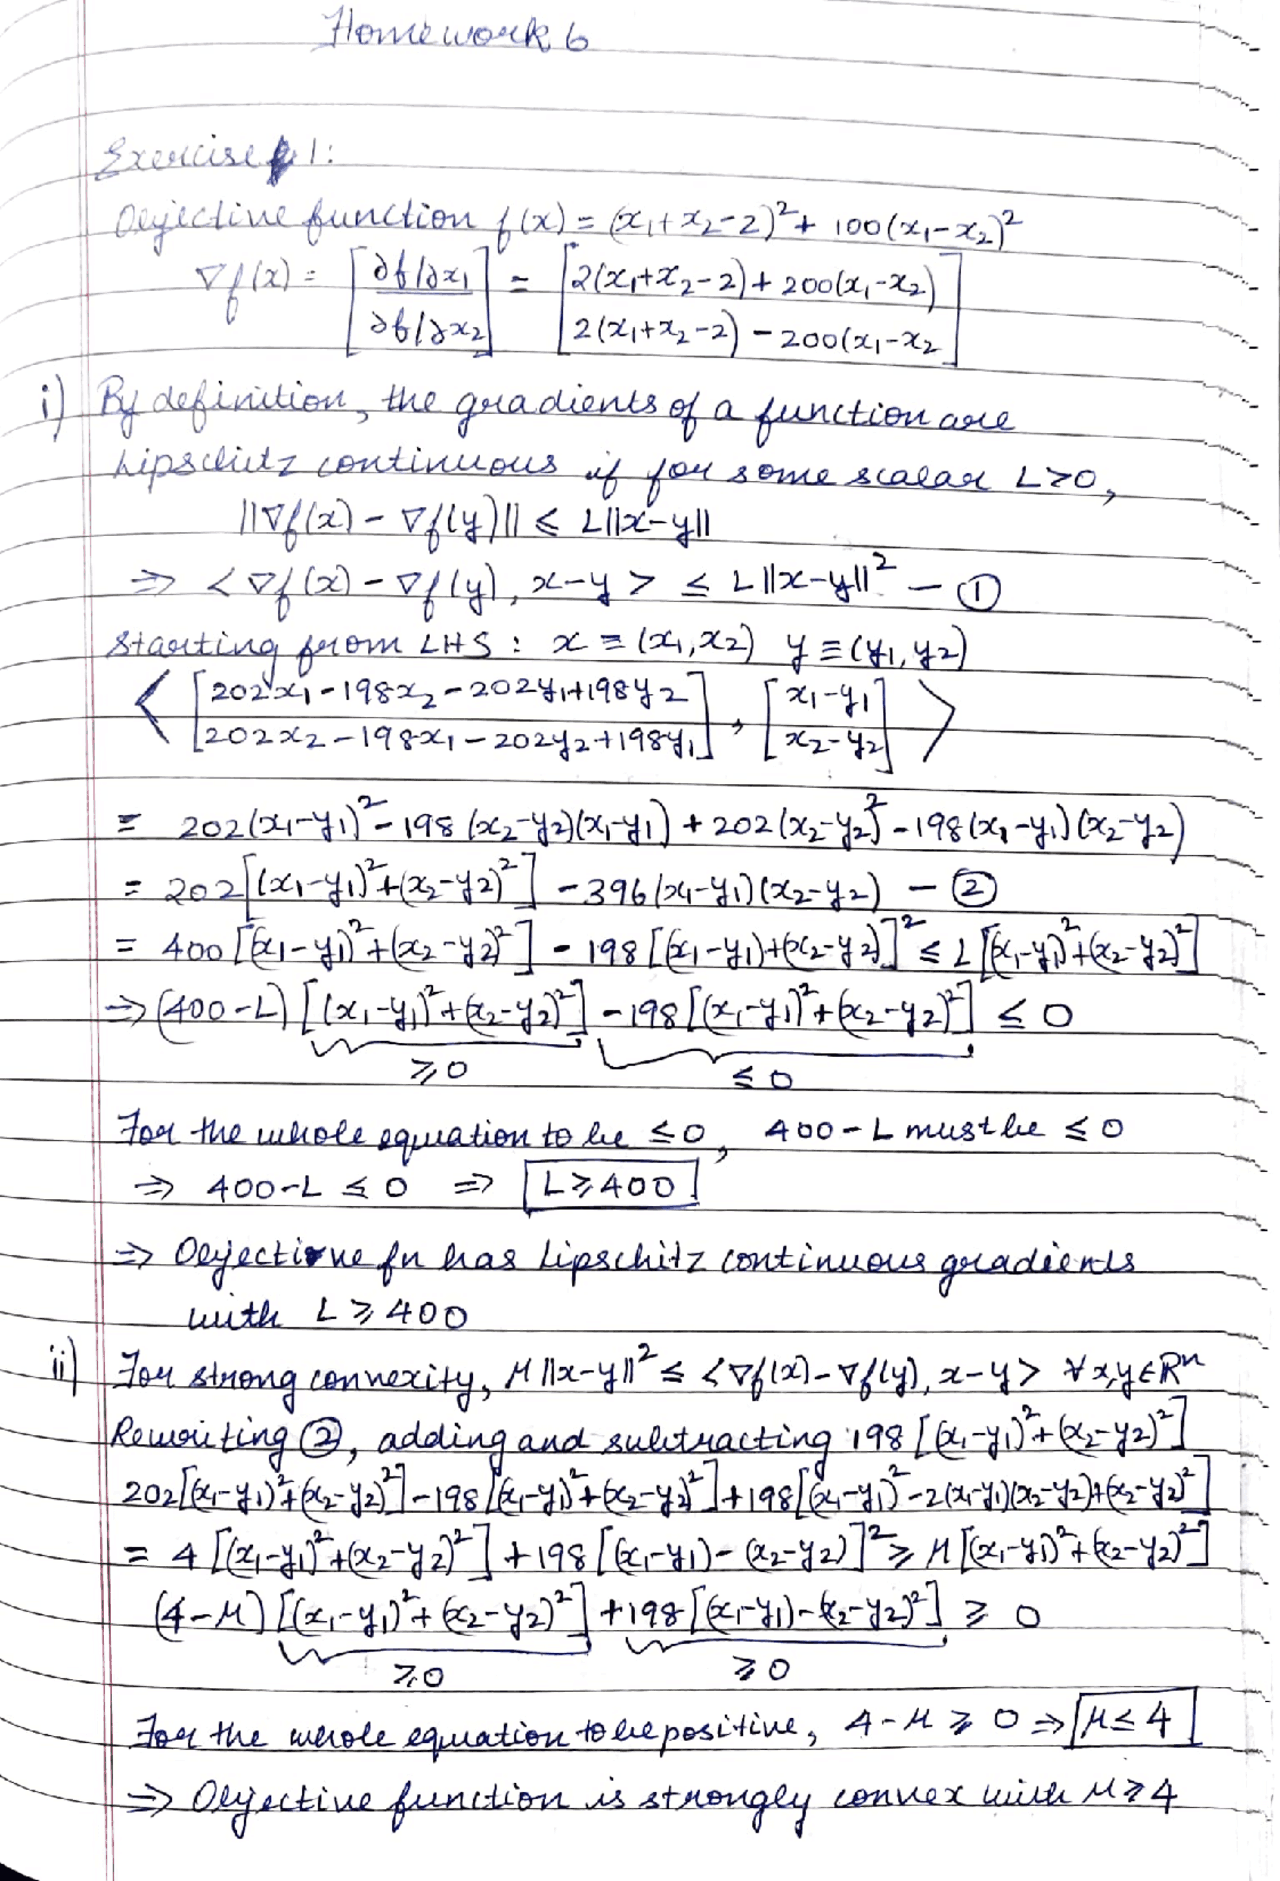 Homework 6
Exercise 1:
Objective function f(x) = (x₁+x₂-2)² + 100(x₁-x₂)²
∇f(x) = [∂f/∂x₁ ; ∂f/∂x₂] = [2(x₁+x₂-2) + 200(x₁-x₂) ; 2(x₁+x₂-2) - 200(x₁-x₂]
i) By definition, the gradients of a function are
Lipschitz continuous if for some scalar L>0,
||∇f(x) - ∇f(y)|| ≤ L||x-y||
⇒ <∇f(x) - ∇f(y), x-y> ≤ L||x-y||² - ①
Starting from LHS : x ≡ (x₁,x₂) y ≡ (y₁,y₂)
< [202x₁-198x₂-202y₁+198y₂ ; 202x₂-198x₁-202y₂+198y₁], [x₁-y₁ ; x₂-y₂] >
= 202(x₁-y₁)² - 198(x₂-y₂)(x₁-y₁) + 202(x₂-y₂)² - 198(x₁-y₁)(x₂-y₂)
= 202[(x₁-y₁)²+(x₂-y₂)²] - 396(x₁-y₁)(x₂-y₂) - ②
= 400[(x₁-y₁)²+(x₂-y₂)²] - 198[(x₁-y₁)+(x₂-y₂)]² ≤ L[(x₁-y₁)²+(x₂-y₂)²]
⇒ (400-L)[(x₁-y₁)²+(x₂-y₂)²] - 198[(x₁-y₁)²+(x₂-y₂)²] ≤ 0
≥0 ≤0
For the whole equation to be ≤0, 400-L must be ≤0
⇒ 400-L ≤ 0 ⇒ L≥400
⇒ Objective fn has Lipschitz continuous gradients
with L ≥ 400
ii) For strong convexity, μ||x-y||² ≤ <∇f(x)-∇f(y), x-y> ∀x,y∈Rⁿ
Rewriting ②, adding and subtracting 198[(x₁-y₁)²+(x₂-y₂)²]
202[(x₁-y₁)²+(x₂-y₂)²]-198[(x₁-y₁)²+(x₂-y₂)²]+198[(x₁-y₁)²-2(x₁-y₁)(x₂-y₂)+(x₂-y₂)²]
= 4[(x₁-y₁)²+(x₂-y₂)²] + 198[(x₁-y₁)-(x₂-y₂)]² ≥ μ[(x₁-y₁)²+(x₂-y₂)²]
(4-μ)[(x₁-y₁)²+(x₂-y₂)²] + 198[(x₁-y₁)-(x₂-y₂)²] ≥ 0
≥0 ≥0
For the whole equation to be positive, 4-μ ≥ 0 ⇒ μ≤4
⇒ Objective function is strongly convex with μ≥4